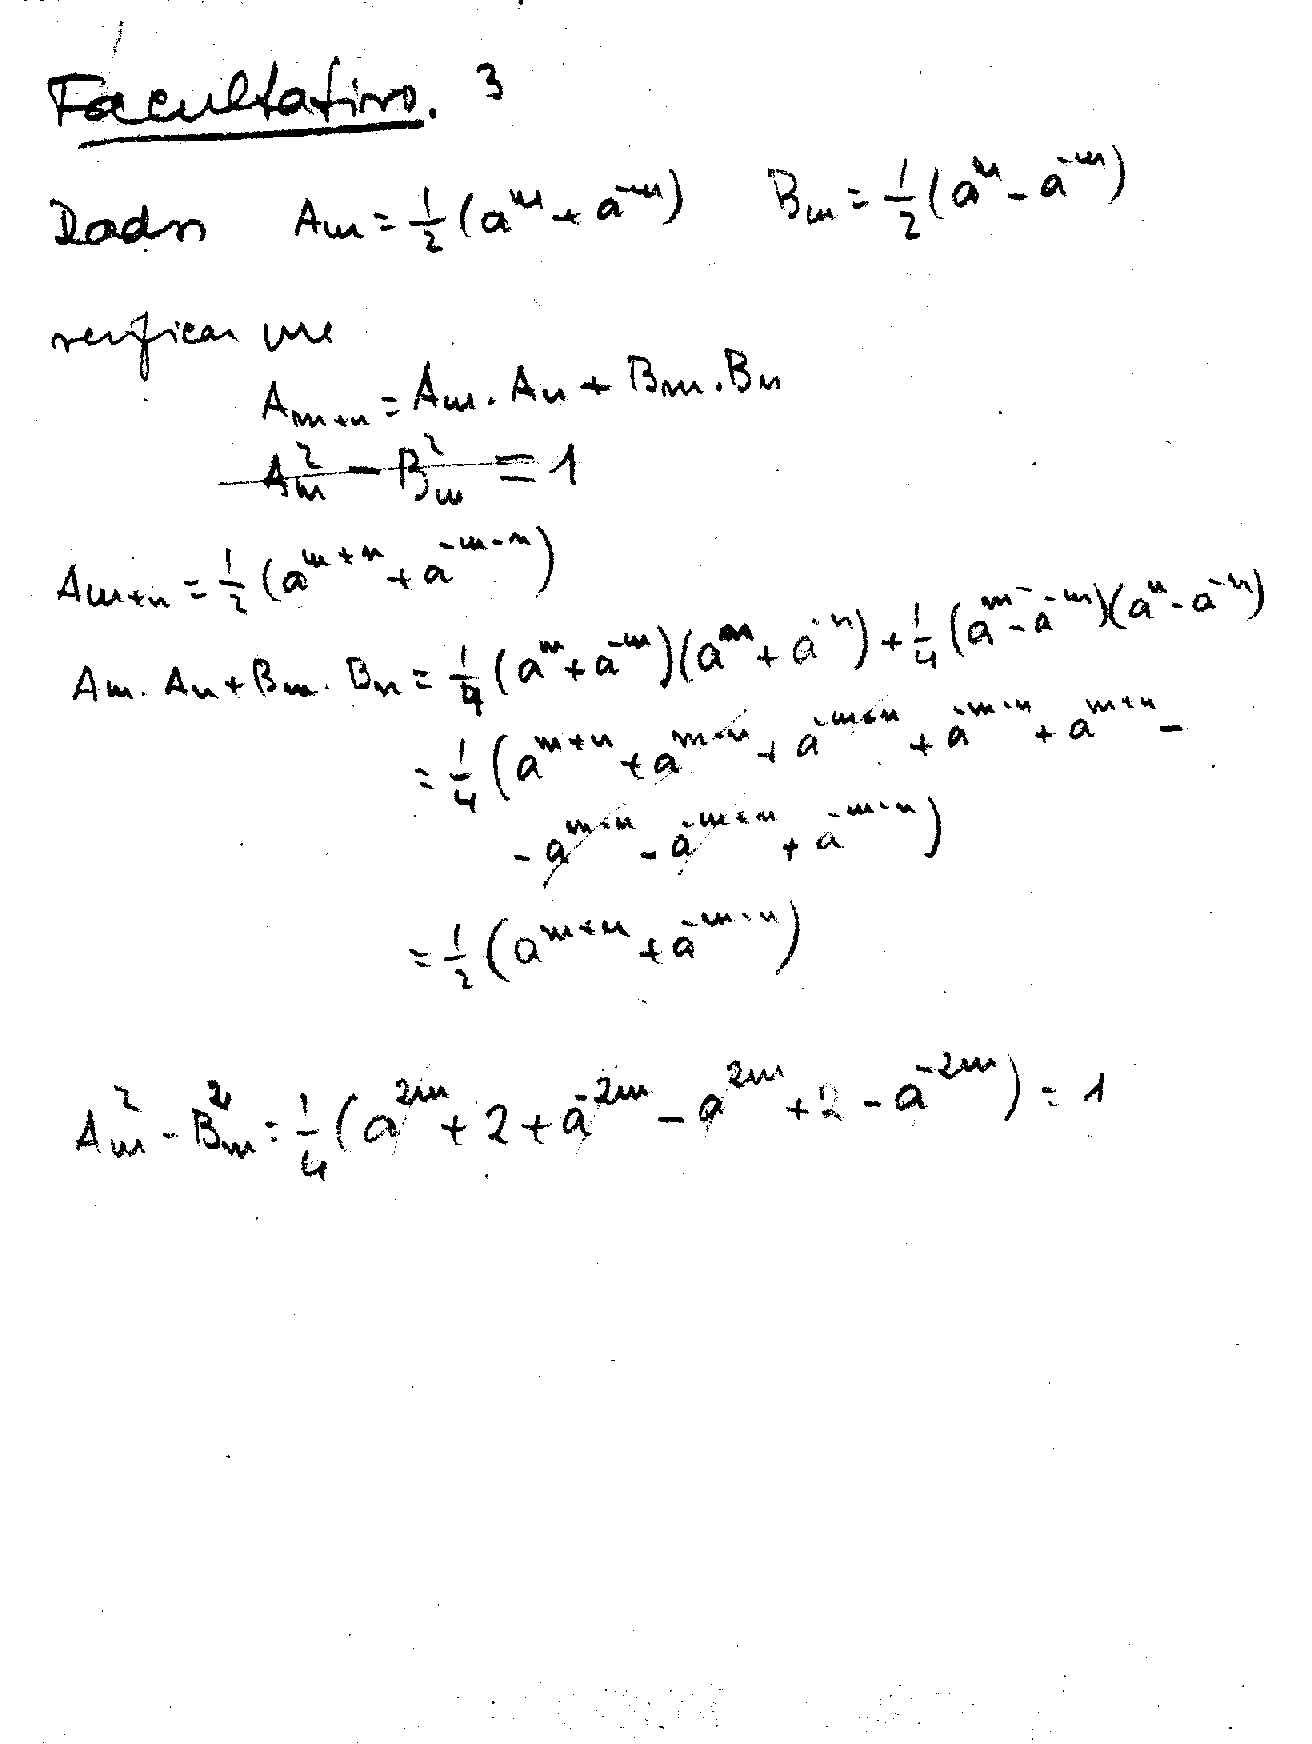 Facultativo. 3
Dados A_m = 1/2 (a^m + a^{-m}) B_m = 1/2 (a^m - a^{-m})
verificar que
A_{m+n} = A_m . A_n + B_m . B_n
A_m^2 - B_m^2 = 1
A_{m+n} = 1/2 (a^{m+n} + a^{-m-n})
A_m . A_n + B_m . B_n = 1/4 (a^m + a^{-m})(a^n + a^{-n}) + 1/4 (a^m - a^{-m})(a^n - a^{-n})
= 1/4 (a^{m+n} + a^{m-n} + a^{-m+n} + a^{-m-n} + a^{m+n} -
- a^{m-n} - a^{-m+n} + a^{-m-n})
= 1/2 (a^{m+n} + a^{-m-n})
A_m^2 - B_m^2 = 1/4 (a^{2m} + 2 + a^{-2m} - a^{2m} + 2 - a^{-2m}) = 1